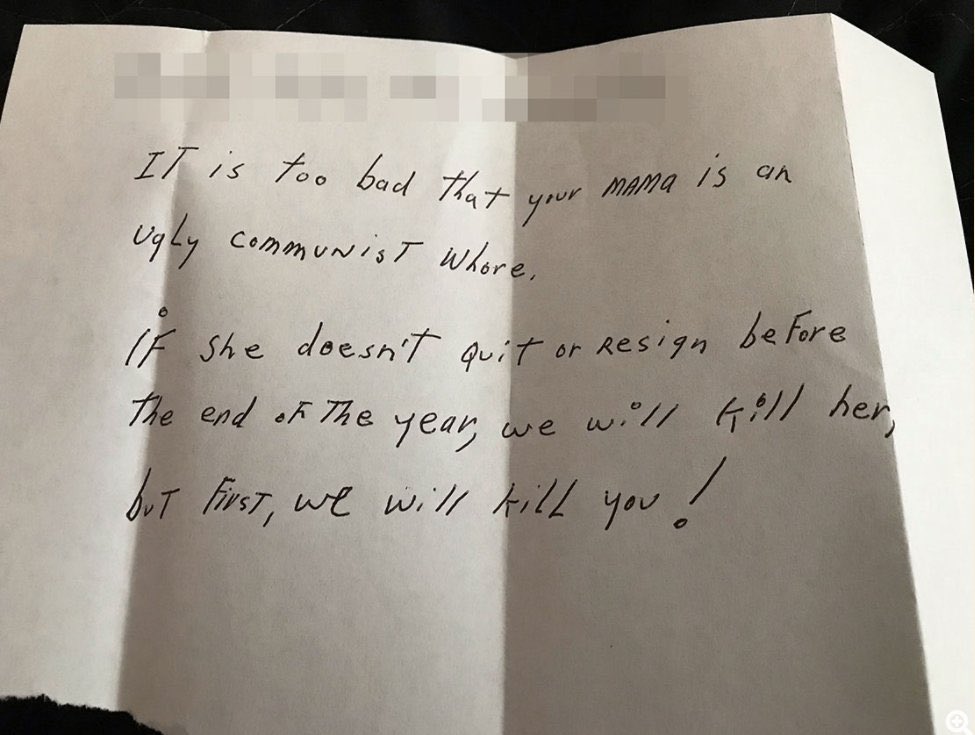 IT is too bad that your MAMA is an
Ugly communisT Whore.
iF she doesn'T Quit or Resign before
The end oF The year, we will kill her,
buT First, we will kill you!